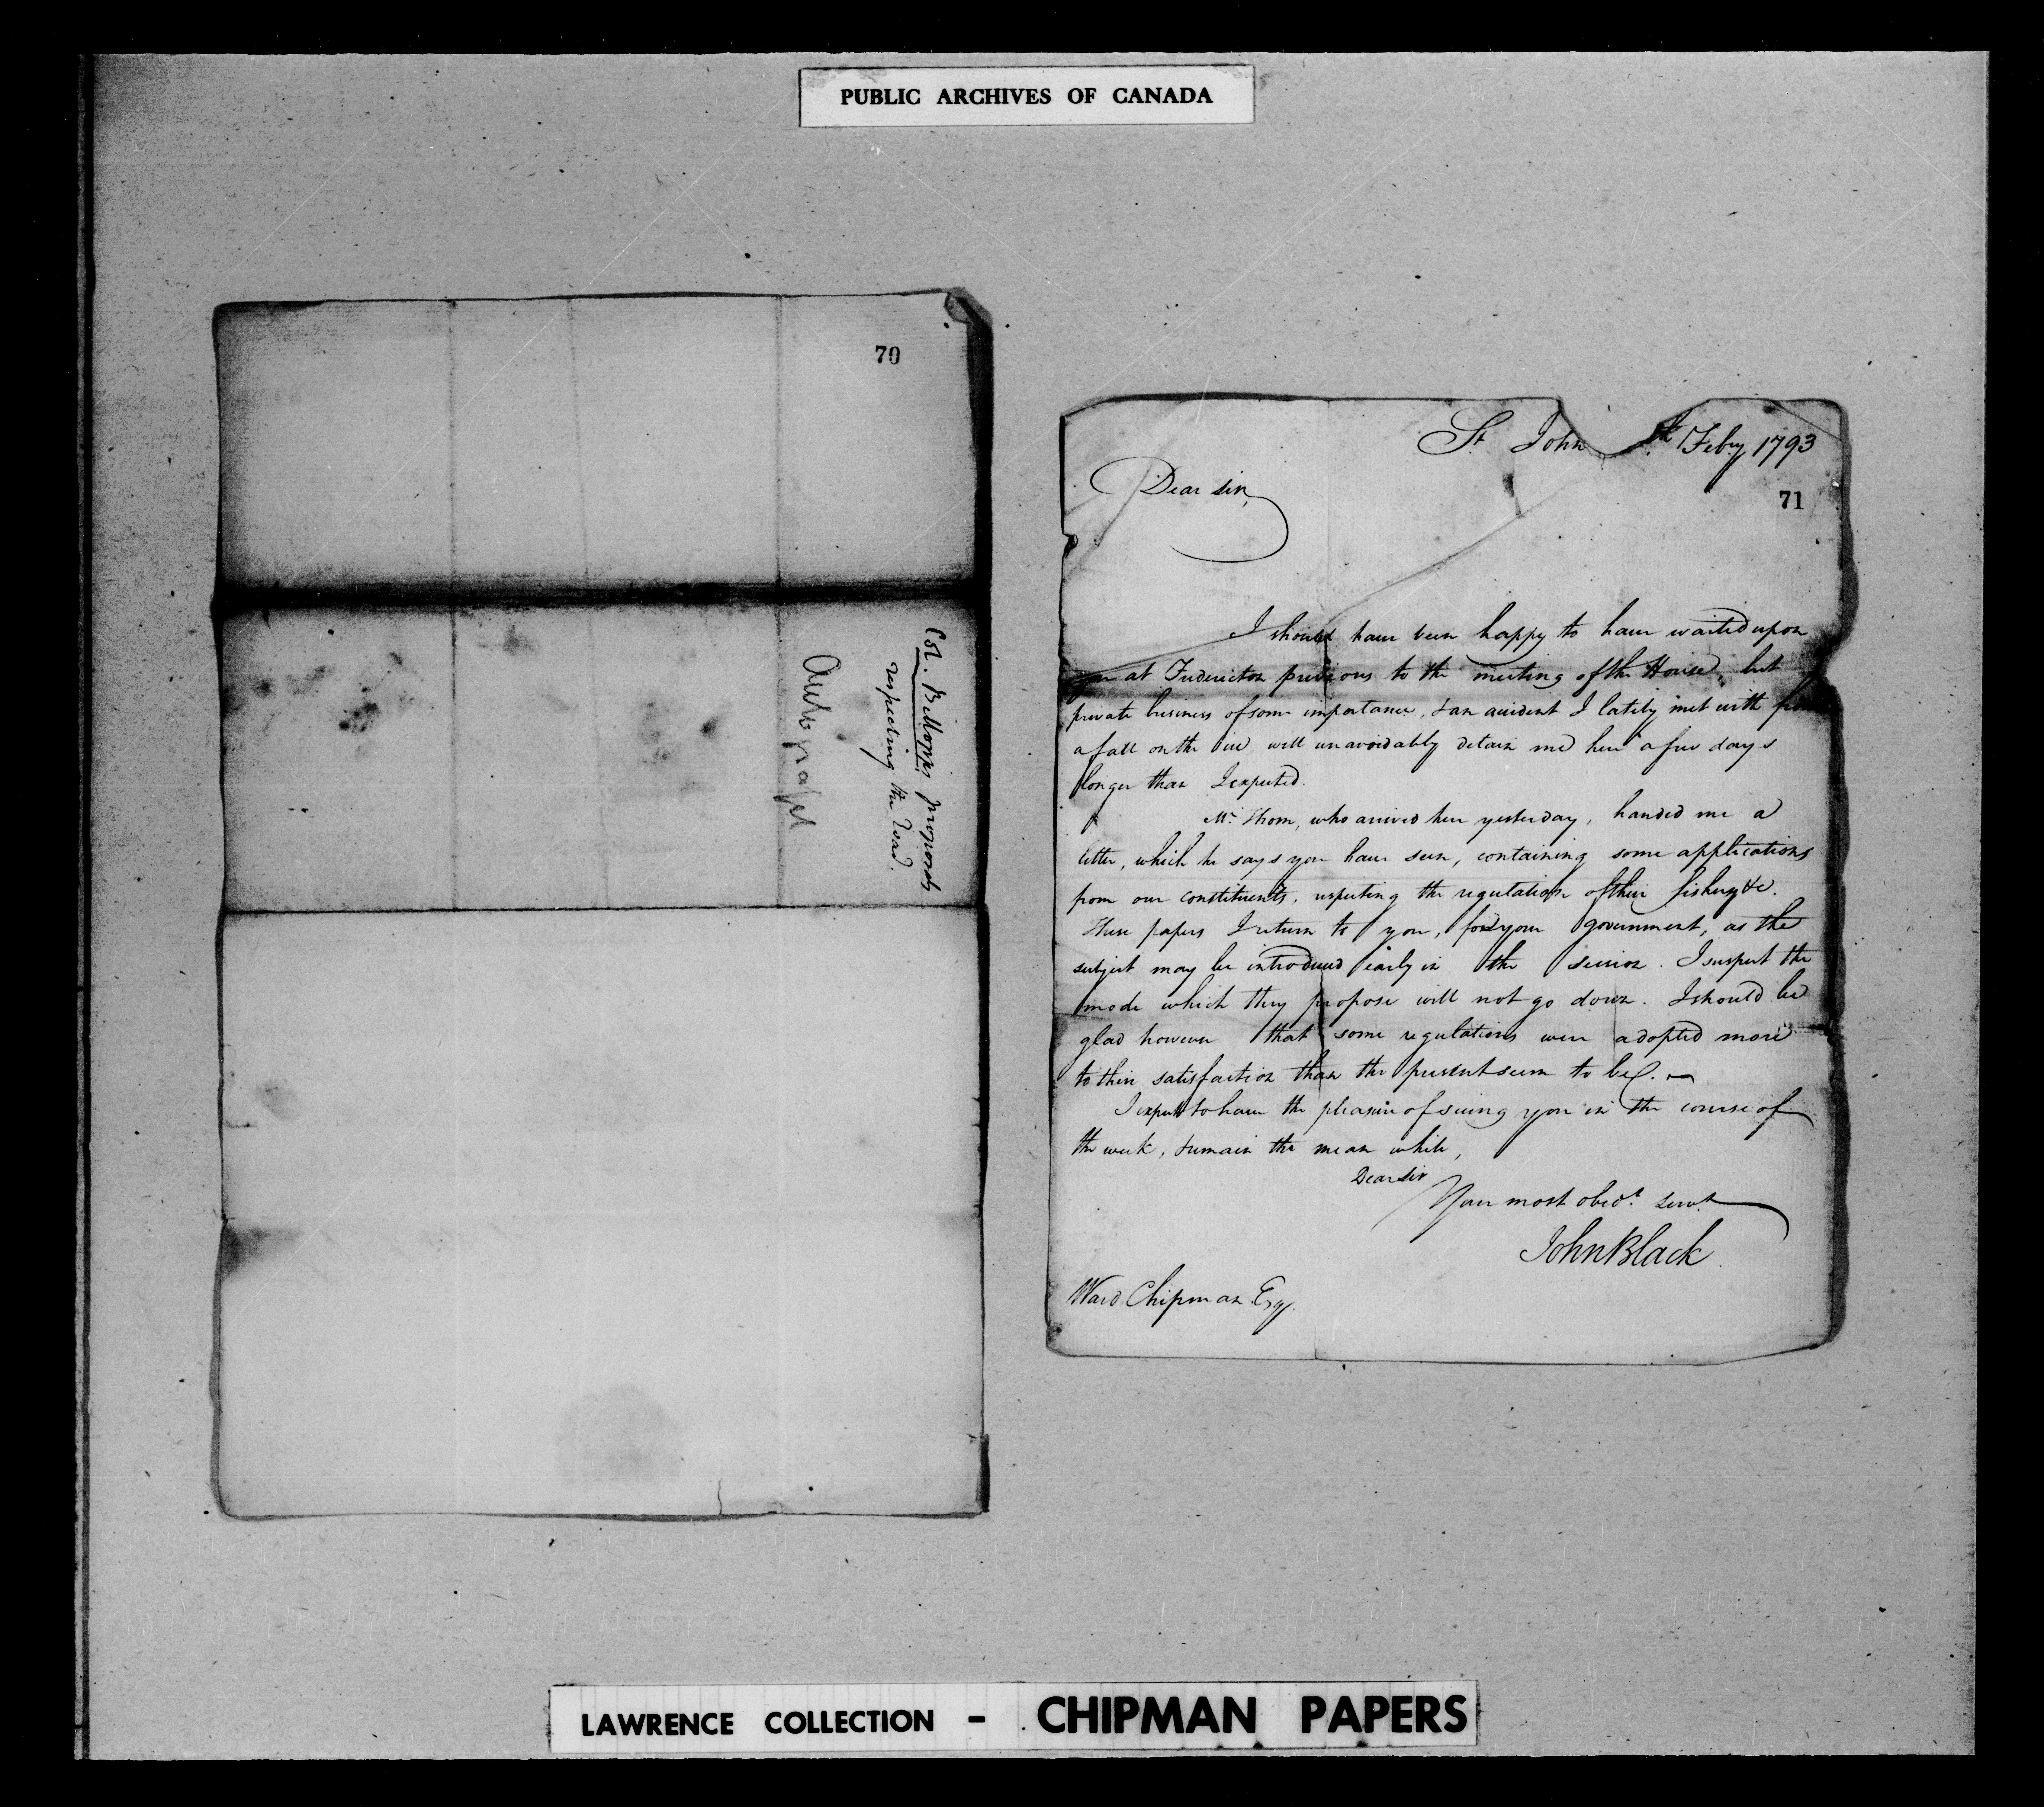 PUBLIC ARCHIVES OF CANADA
70
Col. Bellopps proposals
respecting the road.
Autograph
St. John th Feby 1793
71
Dear Sir,
I should have been happy to have waited upon
you at Fredericton previous to the meeting of the House, but
private business of some importance, & an accident I lately met with from
a fall on the ice, will unavoidably detain me here a few days
longer than I expected.
Mr. Thom, who arrived here yesterday, handed me a
letter, which he says you have seen, containing some applications
from our constituents, respecting the regulation of their fishery &c.
These papers I return to you, for your government, as the
subject may be introduced early in the session. I suspect the
mode which they propose will not go down. I should be
glad however that some regulations were adopted more
to their satisfaction than the present seem to be. —
I expect to have the pleasure of seeing you in the course of
the week, & remain the mean while,
Dear Sir
Your most obedt. Servt.
John Black
Ward Chipman Esqr.
LAWRENCE COLLECTION - CHIPMAN PAPERS